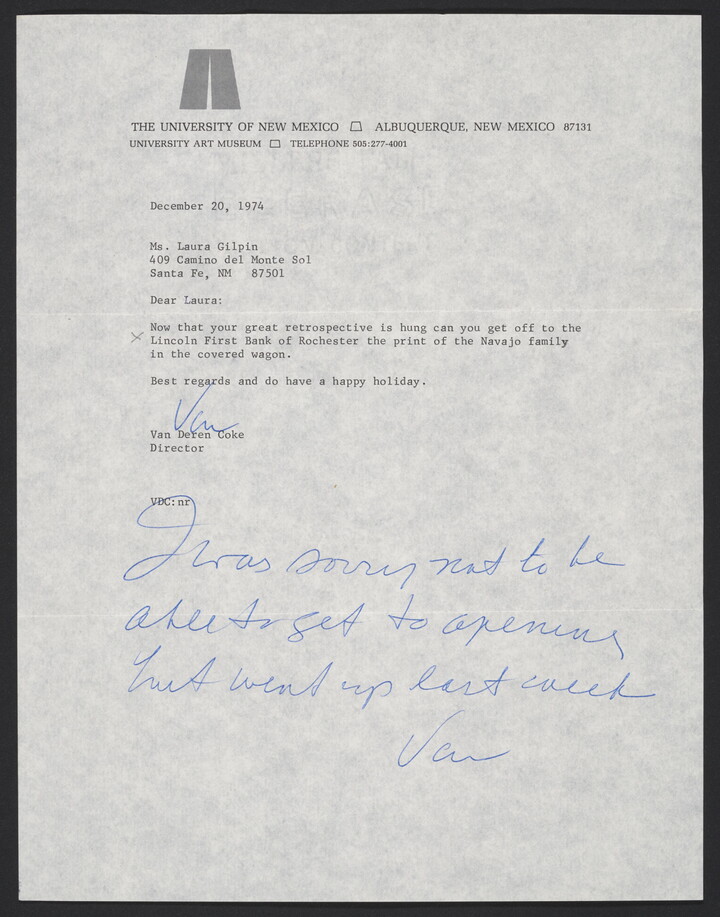 THE UNIVERSITY OF NEW MEXICO ALBUQUERQUE, NEW MEXICO 87131
UNIVERSITY ART MUSEUM TELEPHONE 505:277-4001
December 20, 1974
Ms. Laura Gilpin
409 Camino del Monte Sol
Santa Fe, NM 87501
Dear Laura:
Now that your great retrospective is hung can you get off to the
Lincoln First Bank of Rochester the print of the Navajo family
in the covered wagon.
Best regards and do have a happy holiday.
Van
Van Deren Coke
Director
VDC:nr
I was sorry not to be
able to get to opening
but went up last week
Van